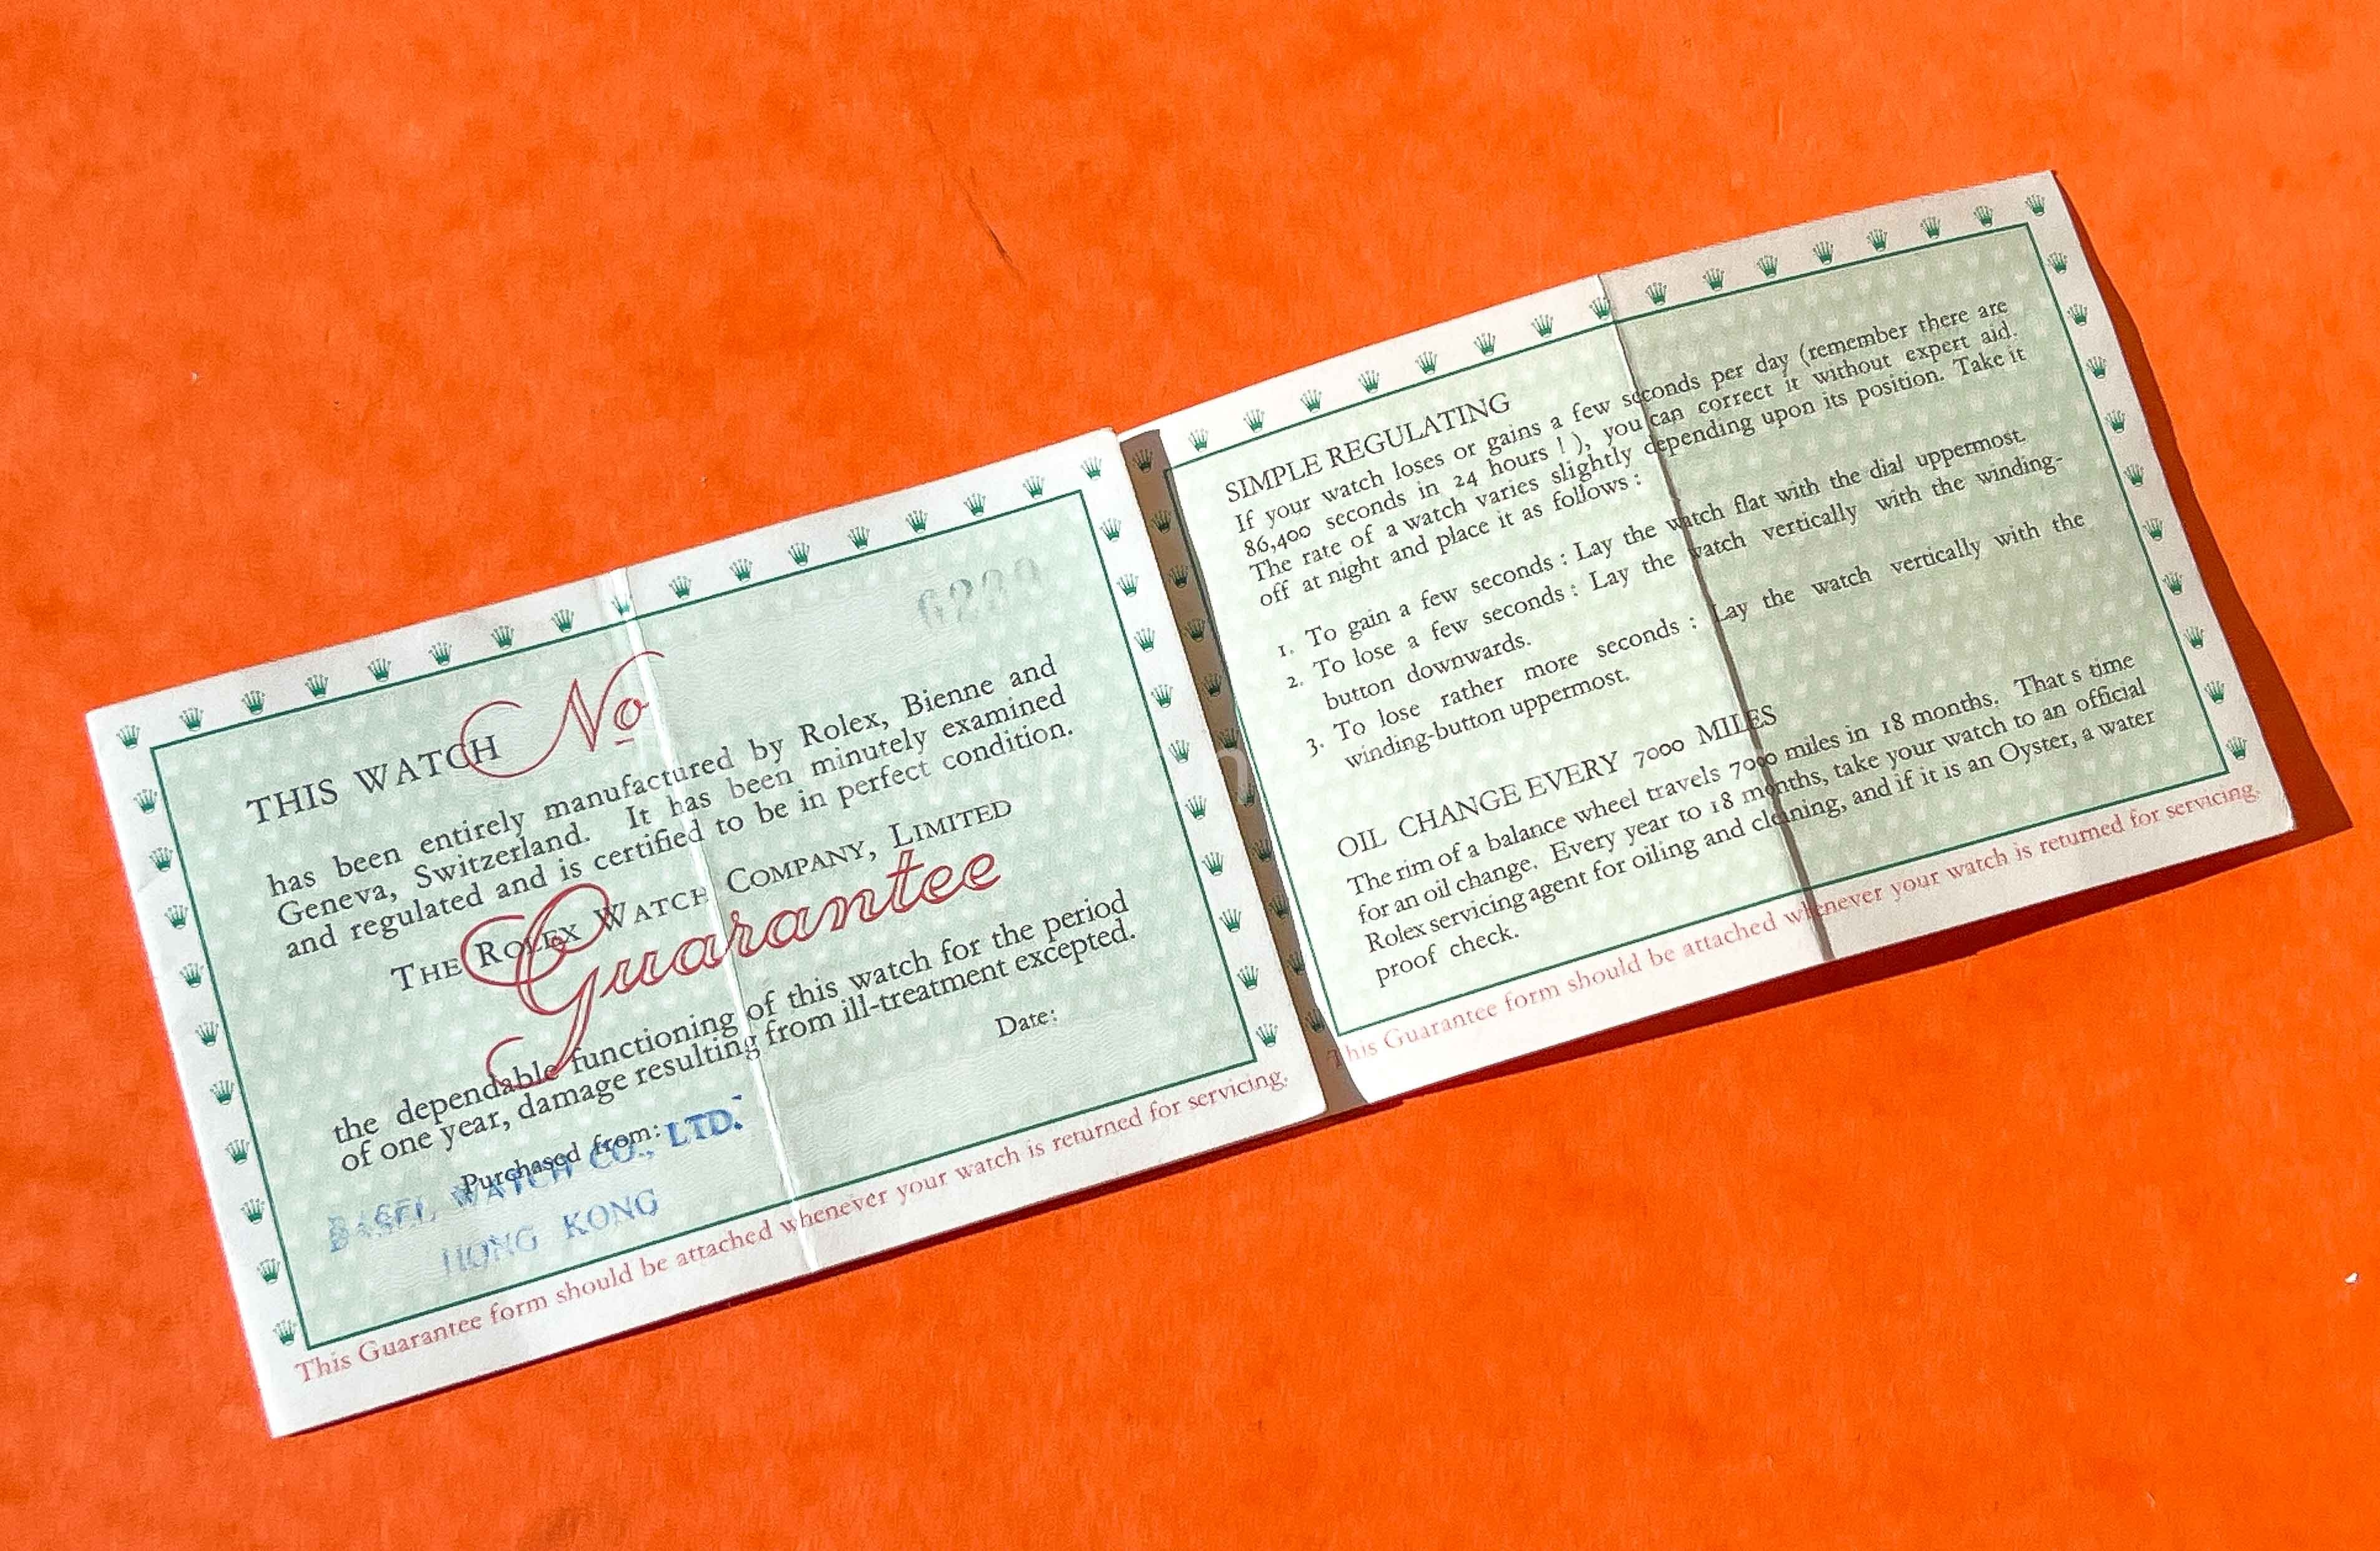 THIS WATCH No
has been entirely manufactured by Rolex, Bienne and
Geneva, Switzerland. It has been minutely examined
and regulated and is certified to be in perfect condition.
THE ROLEX WATCH COMPANY, LIMITED
Guarantee
the dependable functioning of this watch for the period
of one year, damage resulting from ill-treatment excepted.
Date:
Purchased from:
BASEL WATCH CO., LTD.
HONG KONG
This Guarantee form should be attached whenever your watch is returned for servicing.
SIMPLE REGULATING
If your watch loses or gains a few seconds per day (remember there are
86,400 seconds in 24 hours ! ), you can correct it without expert aid.
The rate of a watch varies slightly depending upon its position. Take it
off at night and place it as follows :
1. To gain a few seconds : Lay the watch flat with the dial uppermost.
2. To lose a few seconds : Lay the watch vertically with the winding-
button downwards.
3. To lose rather more seconds : Lay the watch vertically with the
winding-button uppermost.
OIL CHANGE EVERY 7000 MILES
The rim of a balance wheel travels 7000 miles in 18 months. That s time
for an oil change. Every year to 18 months, take your watch to an official
Rolex servicing agent for oiling and cleaning, and if it is an Oyster, a water
proof check.
This Guarantee form should be attached whenever your watch is returned for servicing.